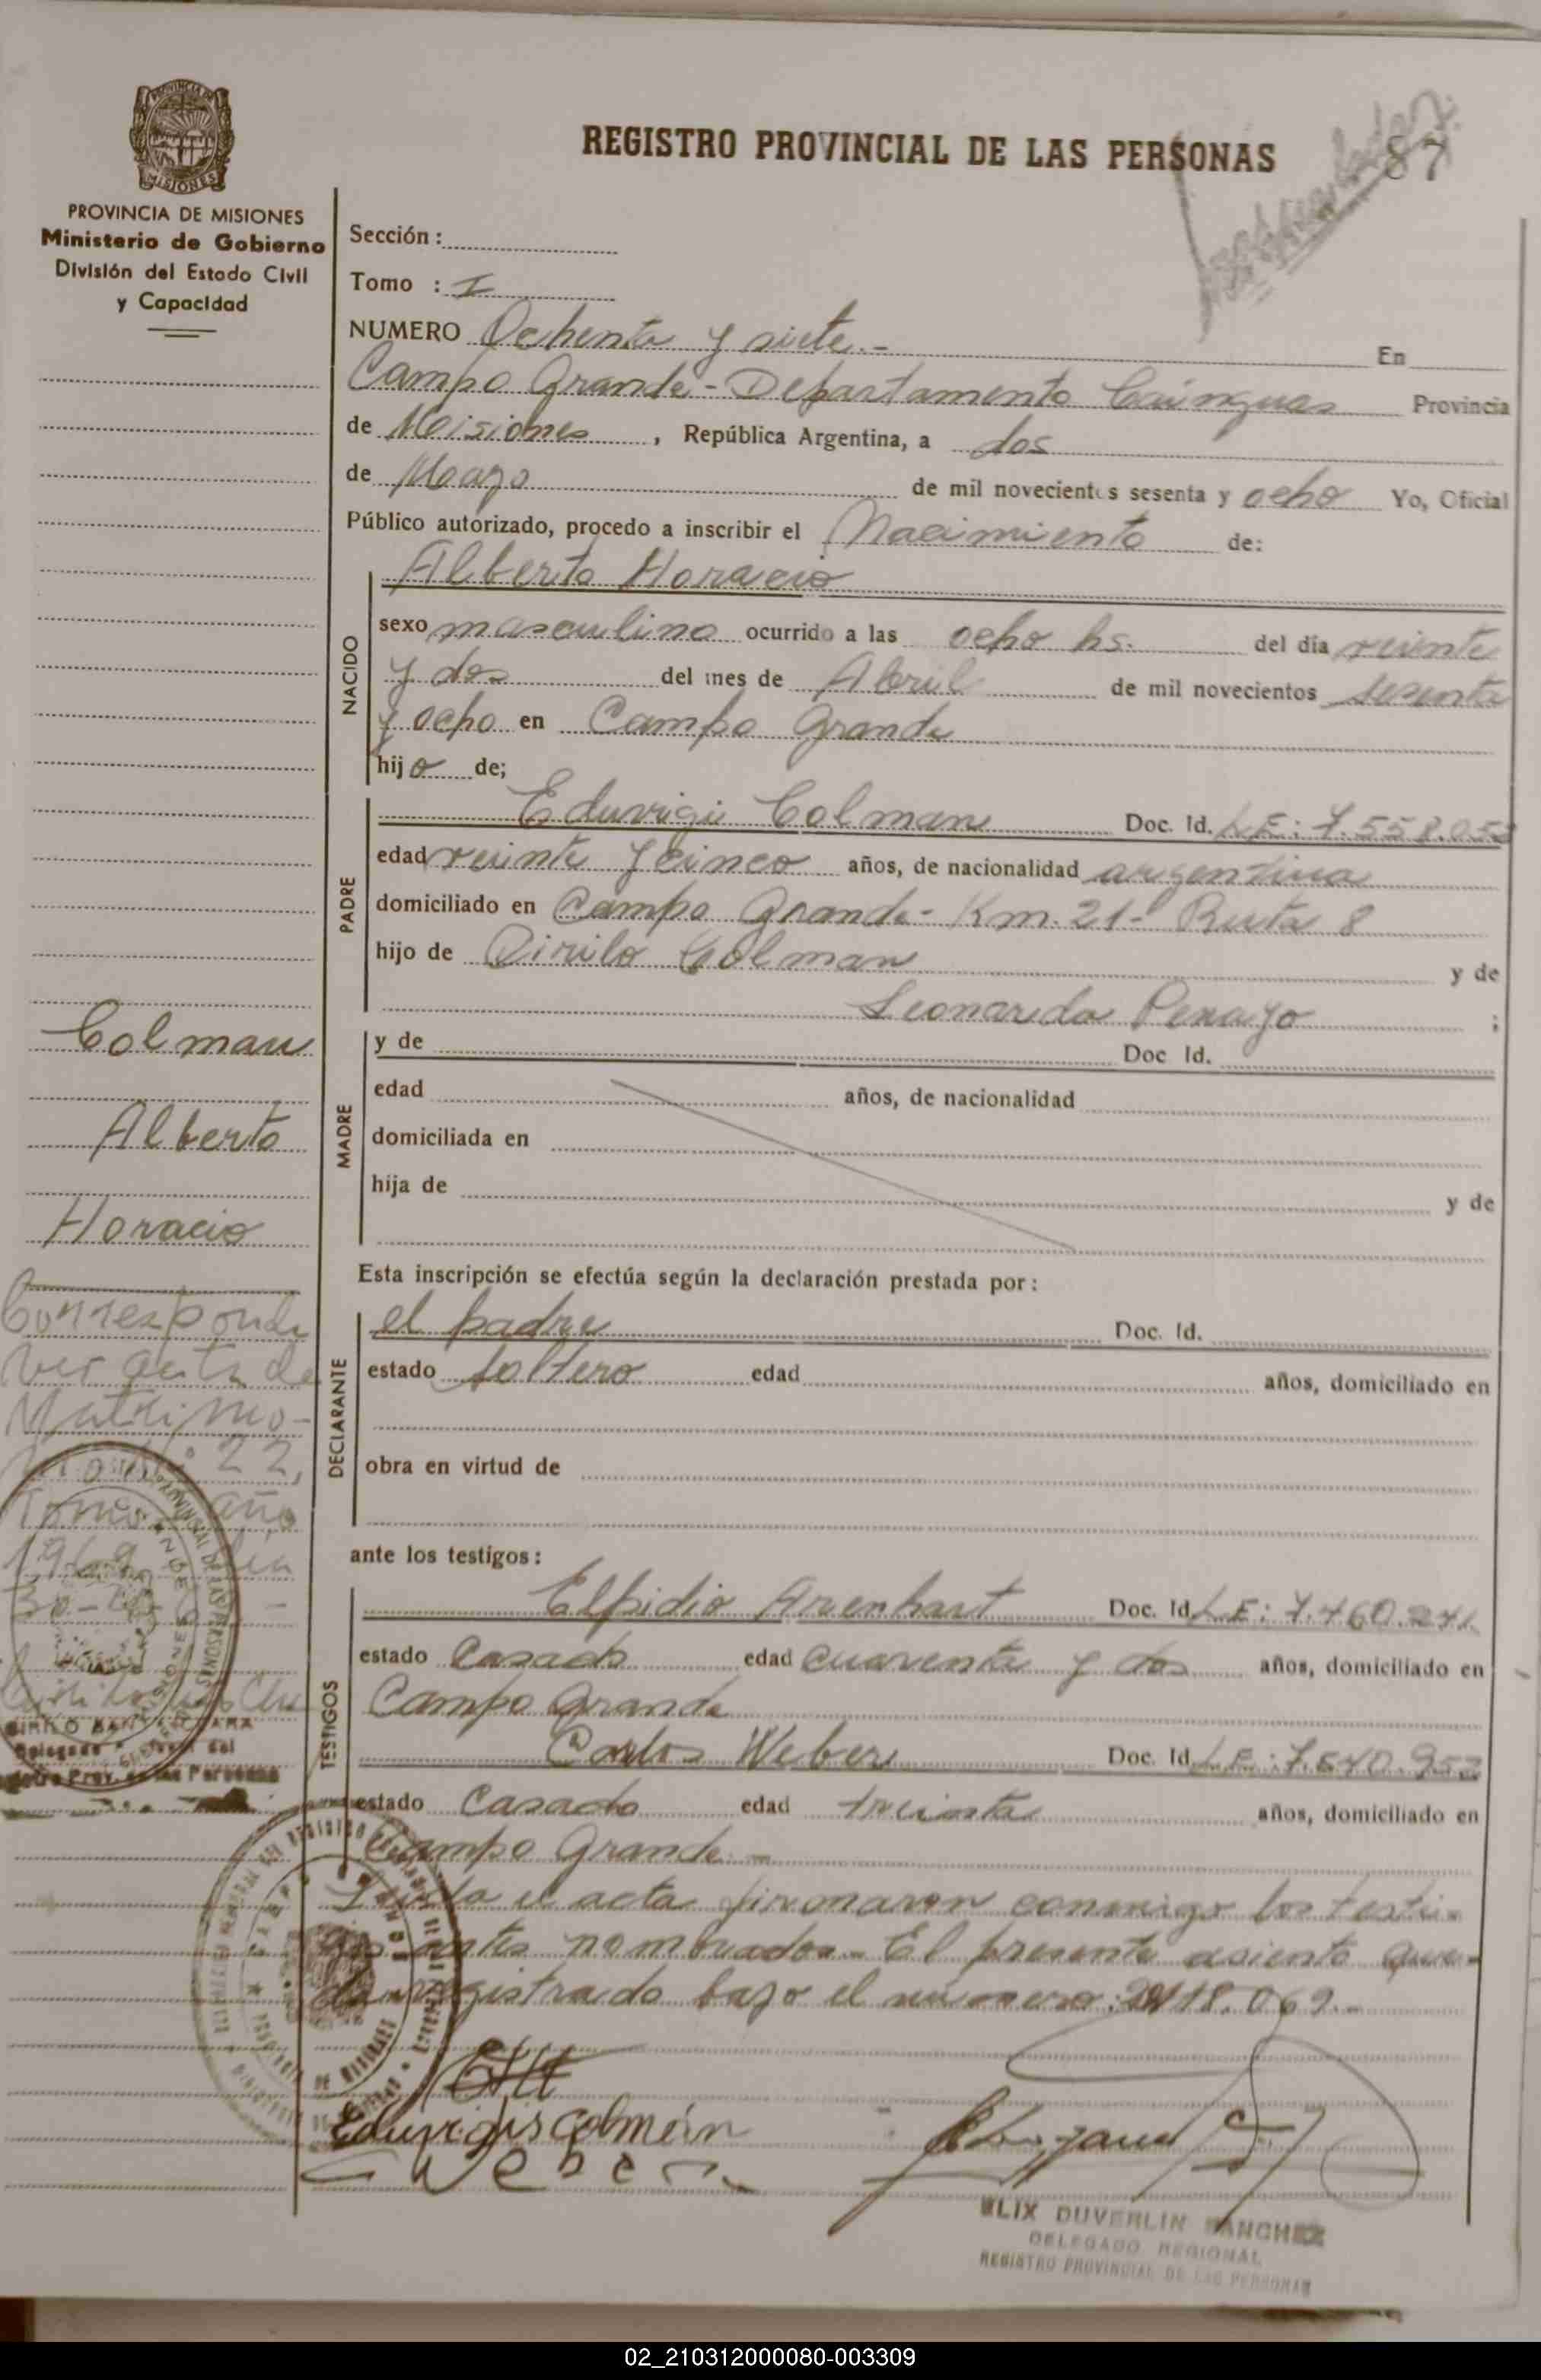 REGISTRO PROVINCIAL DE LAS PERSONAS
87
PROVINCIA DE MISIONES
MISIONES
PROVINCIA DE MISIONES
Ministerio de Gobierno
División del Estado Civil
y Capacidad
Sección :
Tomo : I
NUMERO Ochenta y siete.- En
Campo Grande - Departamento Cainguas Provincia
de Misiones, República Argentina, a dos
de Mayo de mil novecientos sesenta y ocho Yo, Oficial
Público autorizado, procedo a inscribir el Nacimiento de:
NACIDO
Alberto Horacio
sexo masculino ocurrido a las ocho hs. del día veinte
y dos del mes de Abril de mil novecientos sesenta
y ocho en Campo Grande
hijo de;
PADRE
Eduvigis Colman Doc. Id. L E: 7.558.053
edad veinte y cinco años, de nacionalidad argentina
domiciliado en Campo Grande - Km. 21 - Ruta 8
hijo de Cirilo Colman y de
Leonarda Penayo ;
MADRE
y de Doc Id.
edad años, de nacionalidad
domiciliada en
hija de y de
Esta inscripción se efectúa según la declaración prestada por :
DECLARANTE
el padre Doc. Id.
estado soltero edad años, domiciliado en
obra en virtud de
ante los testigos :
TESTIGOS
Elpidio Arenhart Doc. Id. L E: 7.460.241
estado Casado edad cuarenta y dos años, domiciliado en
Campo Grande
Carlos Weber Doc. Id. L E: 7.640.953
estado Casado edad treinta años, domiciliado en
Campo Grande.-
Leída el acta firmaron conmigo los testi-
gos antes nombrados.- El presente asiento que-
da registrado bajo el número: 18.069.-
Colman
Alberto
Horacio
Corresponde
ver acta de
Matrimo-
nio Nº 22,
Tomo año
1969
30-
Registro Prov. de las Personas
Eduvigis Colmán
Weber
ELIX DUVERLIN SANCHEZ
DELEGADO REGIONAL
REGISTRO PROVINCIAL DE LAS PERSONAS
02_210312000080-003309